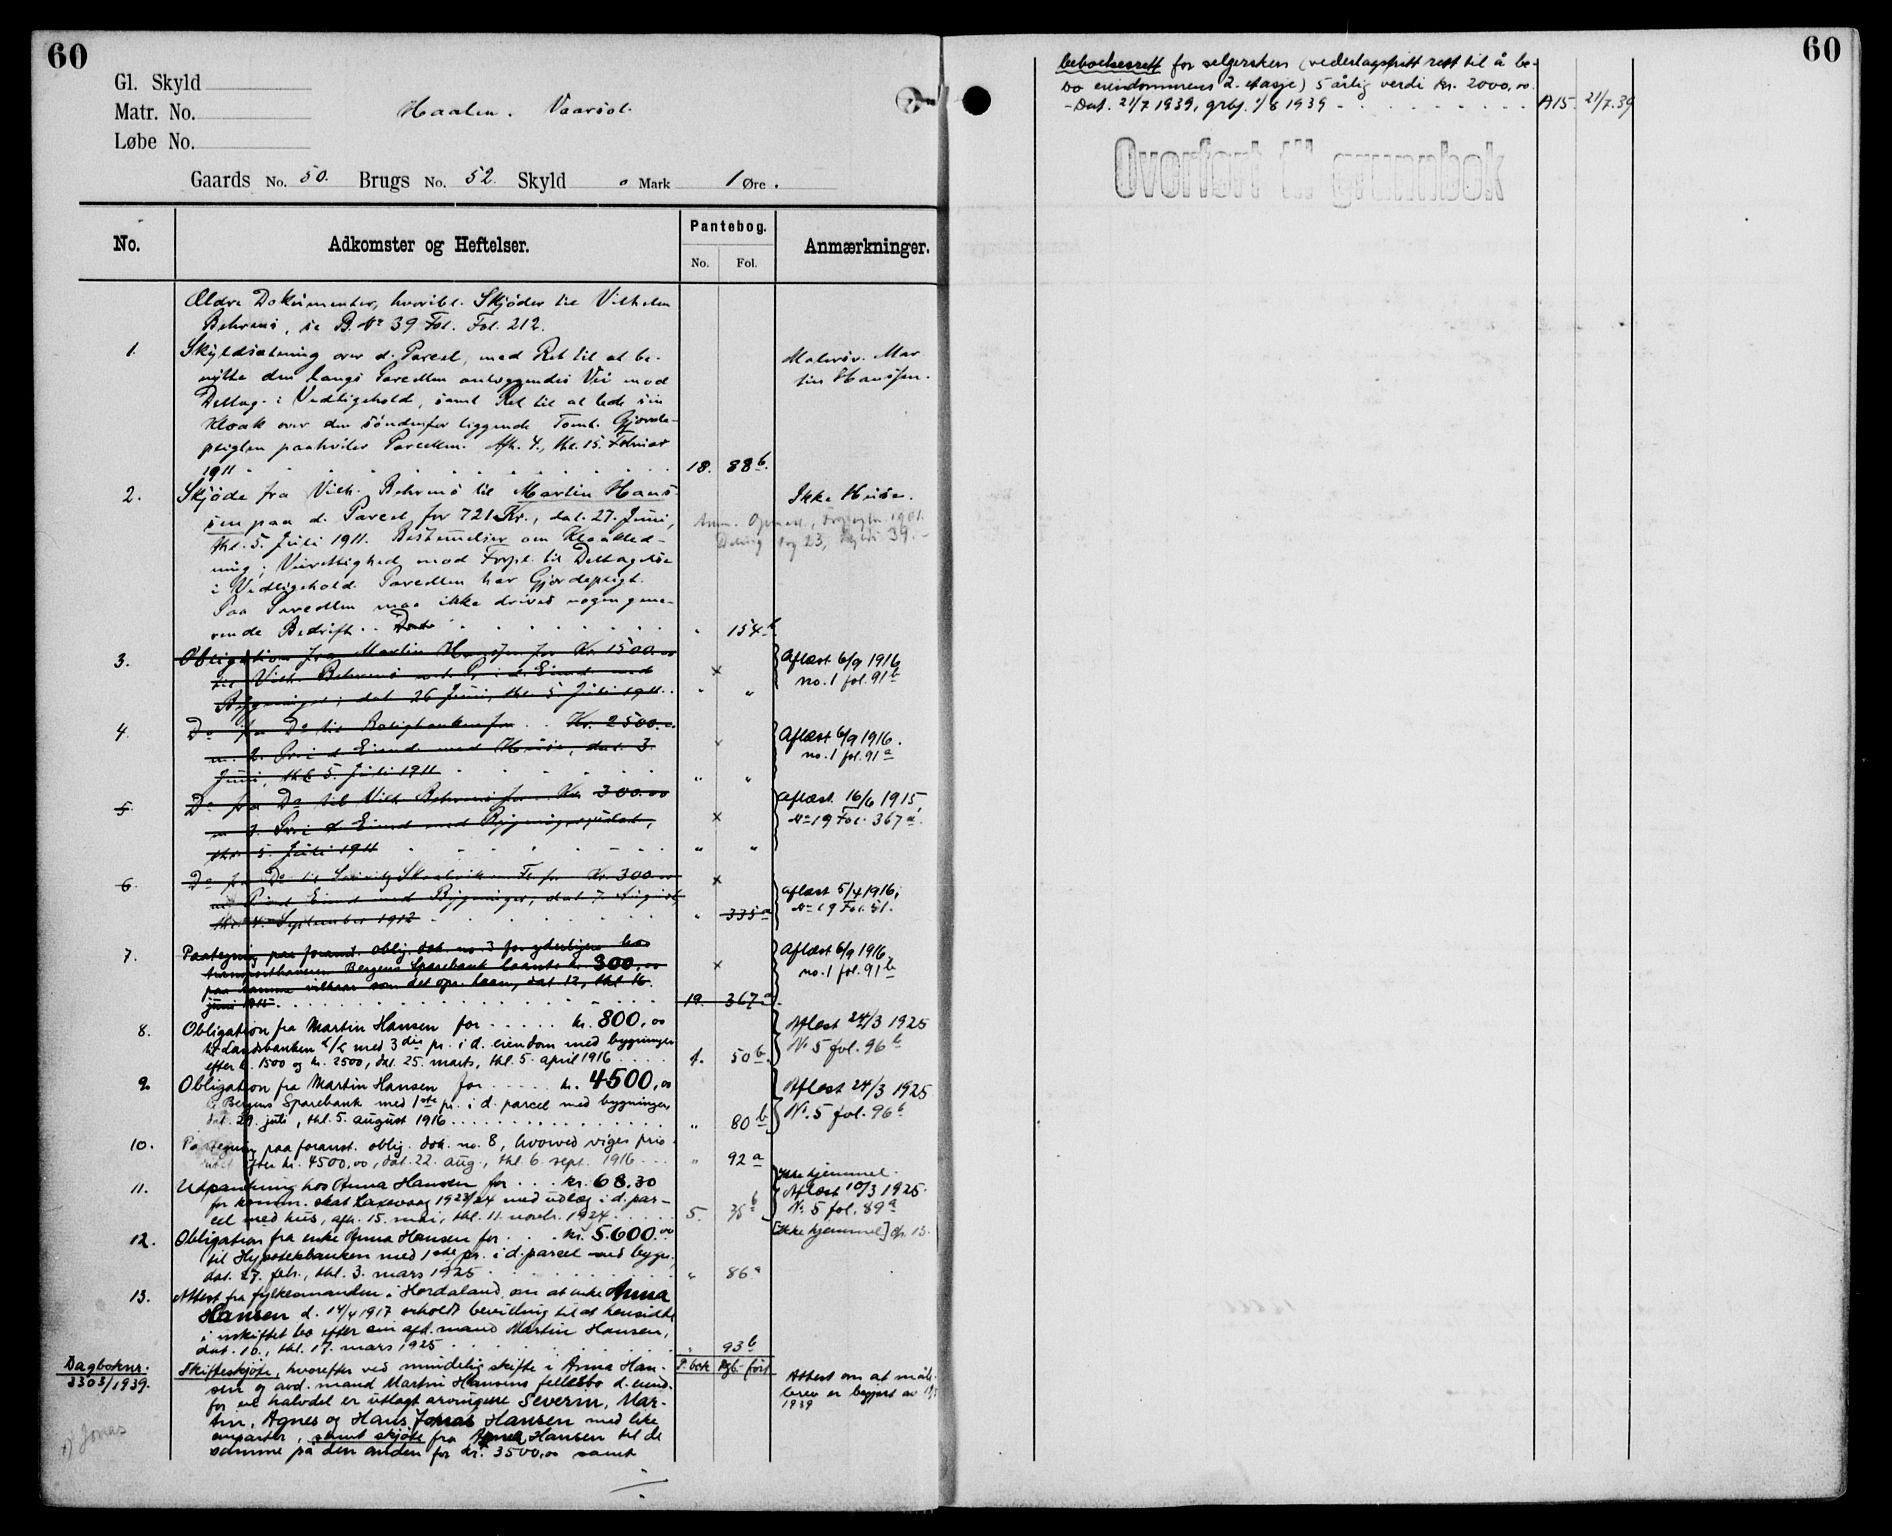 60
Gl. Skyld
Matr. No. Haalen. Vaarsol.
Løbe No.
Gaards No. 50. Brugs No. 52. Skyld 0 Mark 1 Øre.
No. Adkomster og Heftelser. Pantebog. Anmærkninger.
No. Fol.
Ældre Dokumenter, hvoribl. Skjøder til Vilhelm
Behrens, se B. No 39 Fol. 212.
1. Skyldsætning over d. Parcel, med Ret til at be- Malersv. Mar
nytte den langs Parcellen anlæggendes Vei mod tin Hanssen.
Deltag. i Vedligehold, samt Ret til at lede sin
Kloak over den søndenfor liggende Tomt. Gjerde-
pligten paahviler Parcellen. Afh. 4., thl. 15. Februar
1911 18. 88b.
2. Skjøde fra Vilh. Behrens til Martin Hans- Ikke Huse.
sen paa d. Parcel for 721 Kr., dat. 27. Juni,
thl. 5. Juli 1911. Bestemmelser om Kloakled-
ning; Veirettighed mod Forpl. til Deltagelse
i Vedligehold. Parcellen har Gjerdepligt.
Paa Parcellen maa ikke drives nogen gene-
rende Bedrift. 154b
3. Obligation fra Martin Hanssen for Kr. 1500.00 Aflæst 6/9 1916
til Vilh. Behrens m. 1. Pr. i d. Eiend. med no. 1 fol. 91b
Bygninger, dat. 26 Juni, thl. 5. Juli 1911. " "
4. Do fra Do til Boligbanken for Kr. 2500.00 Aflæst 6/9 1916.
m. 2. Pr. i d. Eiend. med Huse, dat. 3. no. 1 fol. 91a
Juni, thl. 5. Juli 1911 " "
5. Do fra Do til Vilh. Behrens for Kr. 300.00 Aflæst 16/6 1915,
m. 3. Pr. i d. Eiend. med Bygninger, No 19 Fol. 367a.
thl. 5. Juli 1911 " "
6. Do fra Do til for Kr. 300.00 Aflæst 5/4 1916,
Pr. i d. Eiend. med Bygninger, dat. 7. August, No 19 Fol. 51.
thl. 4. September 1912 " 335a
7. Paategning paa foranst. oblig. dok. no. 3 for yderligere hos Aflæst 6/9 1916,
transporthaveren Bergens Sparebank laante kr. 300,00 no. 1 fol. 91b
paa samme vilkaar som det opr. laan, dat. 12, thl. 16.
juni 1915. 19. 367a
8. Obligation fra Martin Hansen for kr. 800,00 Aflæst 24/3 1925
til Landsbanken A/S med 3die pr. i d. eiendom med bygninger No 5 fol. 96b
efter kr. 1500 og kr. 2500, dat. 25. marts, thl. 5. april 1916 1. 50b.
9. Obligation fra Martin Hansen for kr. 4500,00 Aflæst 24/3 1925
til Bergens Sparebank med 1ste pr. i d. parcel med bygninger, No. 5 fol. 96b
dat. 29. juli, thl. 5. august 1916 " 80b
10. Paategning paa foranst. oblig. dok. no. 8, hvorved viges prio-
ritet efter kr. 4500,00, dat. 22. aug., thl. 6. sept. 1916 " 92a
11. Udpantning hos Anna Hansen for kr. 68.30 Ikke hjemmel.
for komm. skat Laxevaag 1923/24 med utlæg i d. par- Aflæst 10/3 1925.
cel med hus, afh. 15. mai, thl. 11. novbr. 1924 5. 75b No. 5 fol. 89a
12. Obligation fra enke Anna Hansen for kr. 5.600.00 [Ikke hjemmel] cfr. 13.
til Hypotekbanken med 1ste pr. i d. parcel med bygn.,
dat. 27. febr., thl. 3. mars 1925 " 86a
13. Attest fra fylkesmanden i Hordaland om at enke Anna
Hansen d. 14/4 1917 erholdt bevilling til at hensidde
i uskiftet bo efter sin afd. mand Martin Hansen,
dat. 16., thl. 17. mars 1925 " 93b
Dagboknr.
3303/1939. Skifteskjøte, hvorefter ved mindelig skifte i Anna Han- P. bok Dgb. ført Attest om at måle-
sens og avd. mand Martin Hansens fellesbo d. eiend. brev er begjært av
for en halvdel er utlagt arvingene Severin, Mar- 1939
tin, Agnes og Hans Jonas Hansen med like
x) Jonas
anparter, samt skjøte fra Anna Hansen til de
samme på den anden for kr. 3500,00 samt
60
beboelsesrett for selgersken (vederlagsfritt rett til å be-
bo eiendommens 2. etasje) 5 årlig verdi kr. 2000,00.
- Dat. 21/7 1939, grbf. 1/8 1939 A15. 21/7.39
Overført til grunnbok